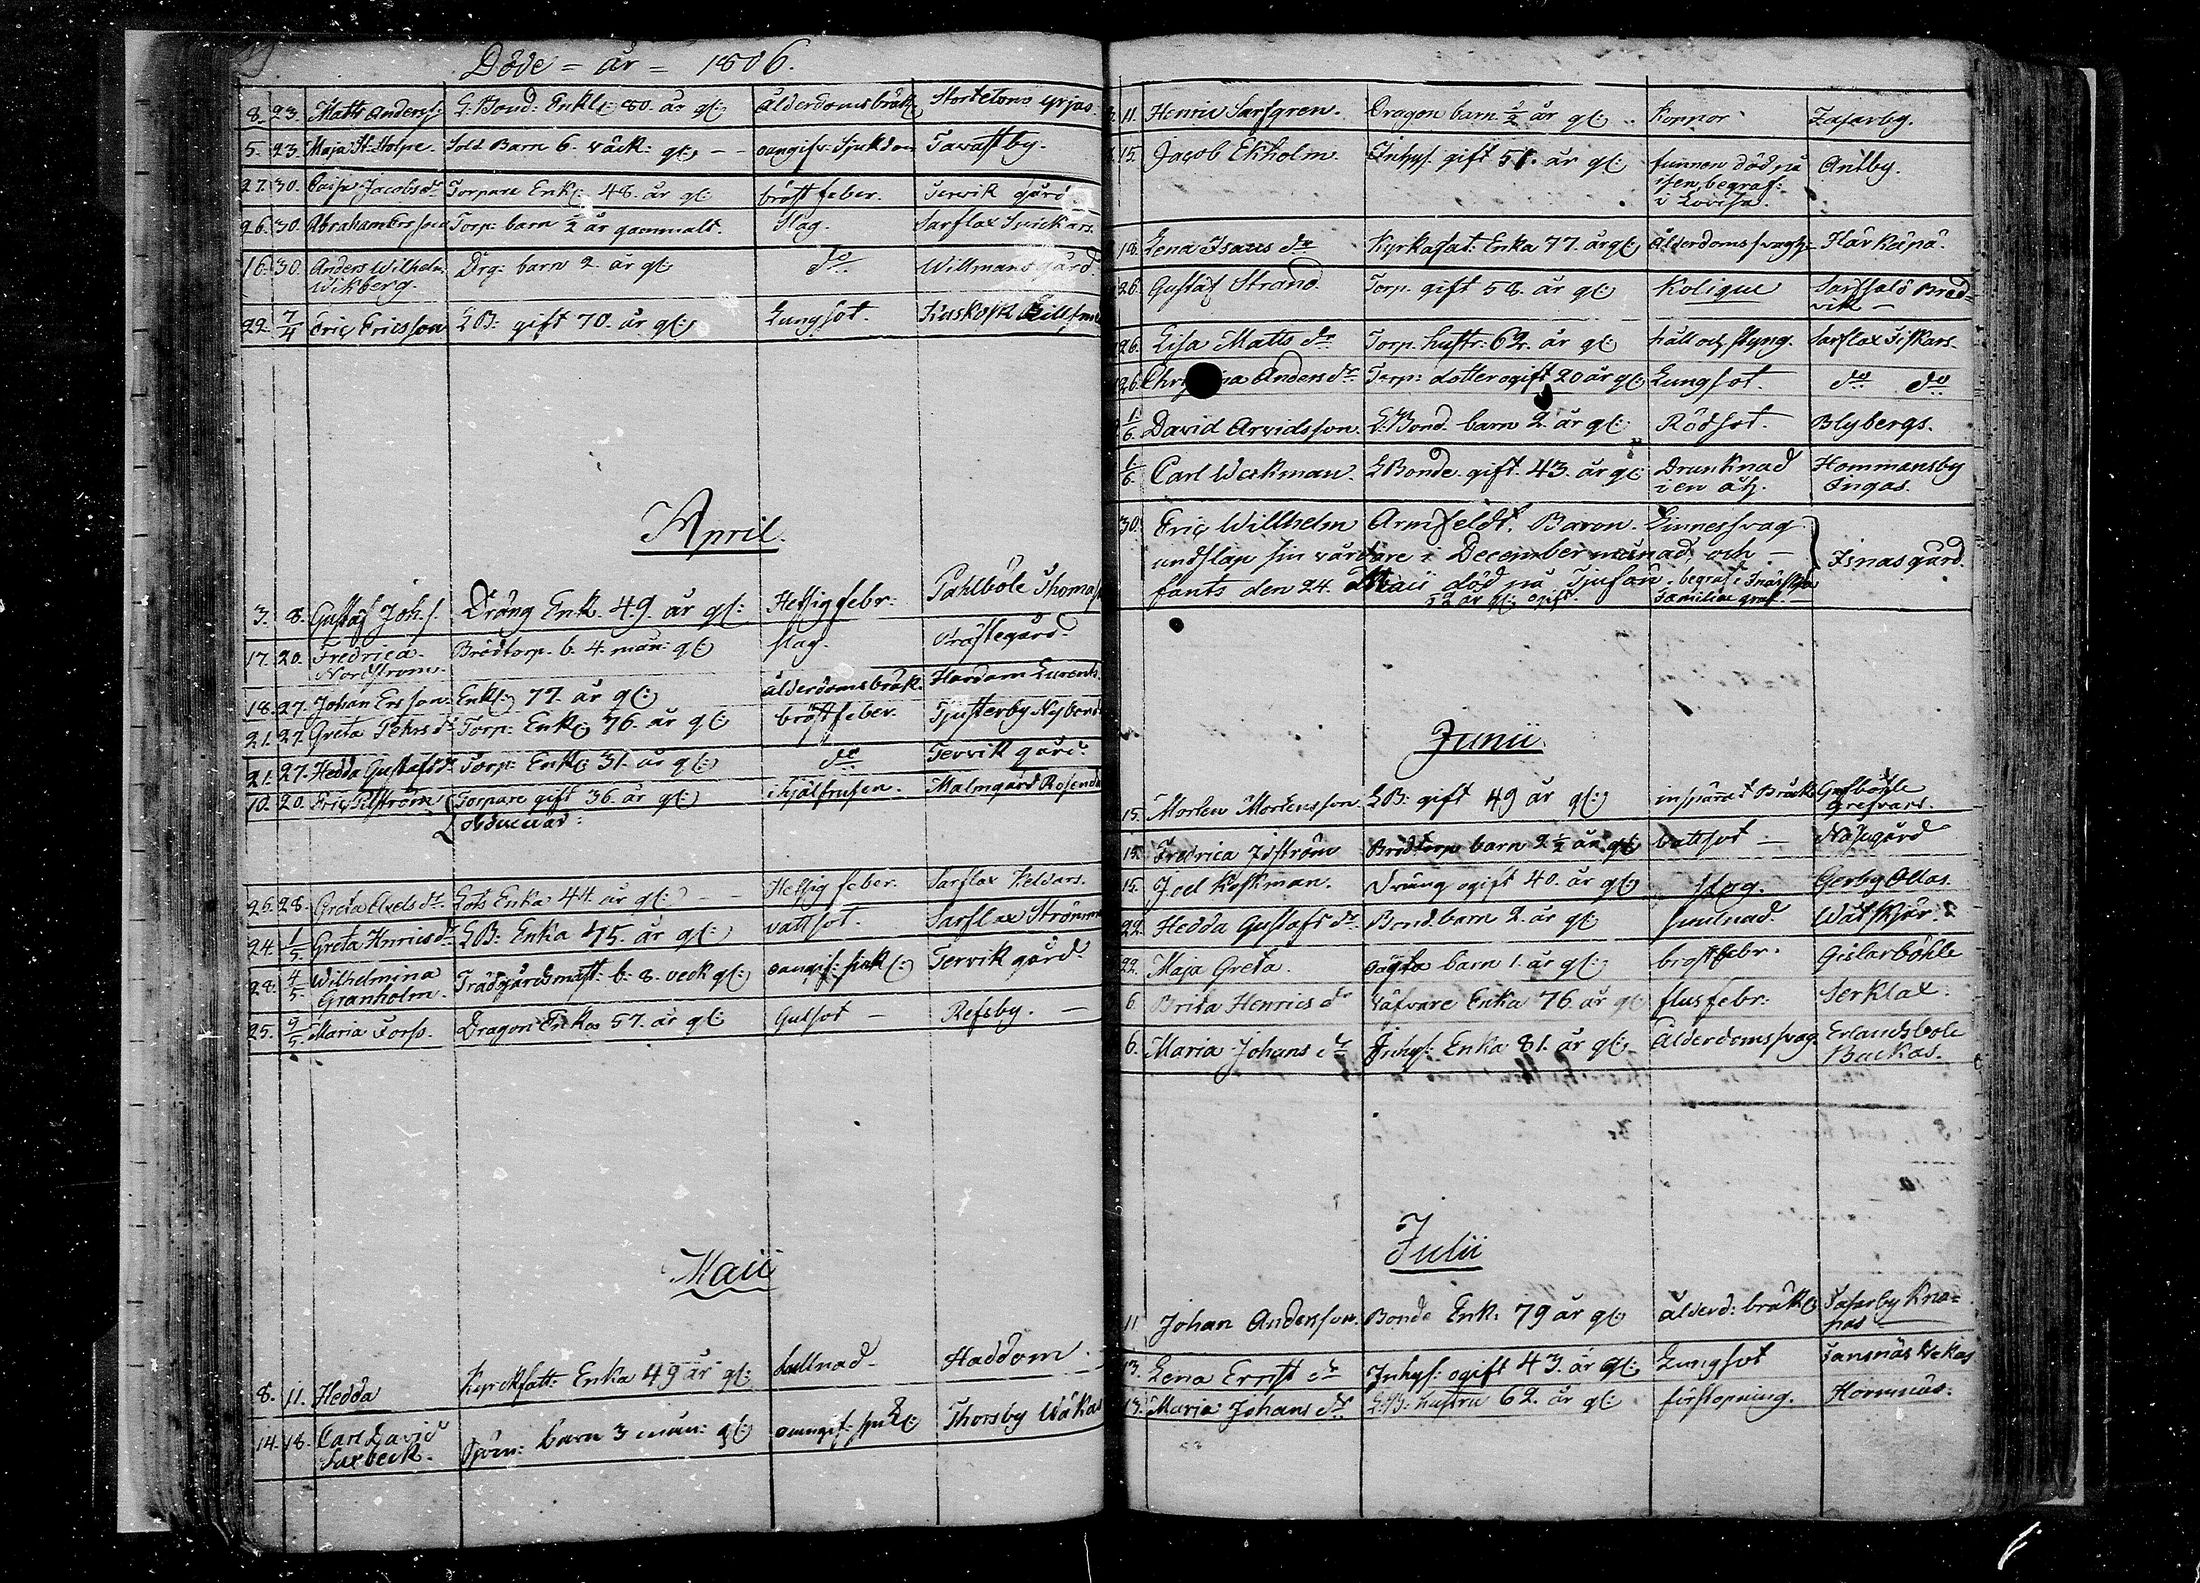 Döde = år = 1806.
8. 23. Matts Anderss: L: Bond: Enkl: 80. år gl: ålderdomsbråk
5. 23. Maja St: Stolpe. Sold. Barn 6. väck: gl: oangifv. Sjukdom Tavastby.
27. 30. Caisa Jacobs dr Torpare Enk: 48. år gl: bröst feber. Tervik gård
26. 30. Abraham Ersson Torp: barn ½ år gammalt. Slag. Sarflax
16. 30. Anders Wilhelm Drg: barn 2. år gl: do Willmans gård.
Wikberg.
22. 7/4 Eric Ericsson LB: gift 70. år gl: Lungsot. Kuskosk
April.
3. 8. Gustaf Joh: s. Dräng Enk. 49. år gl: Hettsig febr: Pahlböle Thomas
17. 20. Fredrica Brödtorp. b. 4. mån: gl: slag. Prästegård.
Nordström.
18. 27. Johan Ersson. Enkl: 77. år gl: ålderdomsbråk. Hardom Lurents
21. 27. Greta Pehrs dr Torp: Enk: 76. år gl: bröstfeber. Tjusterby Nybonds
21. 27. Hedda Gustafs dr Torp: Enk: 31. år gl: do Tervik gård.
10. 20. Eric Torpare gift 36. år gl: ihjälfrusen. Malmgård Rosendal
26. 28. Greta Axels dr Lots Enka 44. år gl: Hettsig feber. Sarflax
24. 1/5 Greta Hinrics dr LB: Enka 75. år gl: vattsot. Sarflax
28. 4/5 Wilhelmina Trädgårdsmäst: b: 8. veck gl: oangif: sjuk: Tervik gård
Granholm.
25. 9/5 Maria Forss. Dragon Enka 57. år gl: Gulsot — Refsby. —
Maii
8. 11. Hedda Kyrckfatt: Enka 49 år gl: Haddom.
14. 18. Carl David barn 3 mån: gl: oangif: sjuk: Thorsby
Saxbeck.
11. Henric Sarfgren. Dragon barn ½ år gl: Koppor
15. Jacob Ekholm. Inhys. gift 51. år gl: funnen död på Antby.
isen, begraf:
i Lovisa.
18. Lena Isacs dr Kyrkofat: Enka 77. år gl: Ålderdoms svagh: Härkäpä.
26. Gustaf Strand Torp. gift 58. år gl: Kolique Sarfsalö Bred=
vik —
26. Lisa Matts dr Torp. hustr: 62. år gl: håll och styng. Sarflax
26. Anders dr Torp: dotter ogift 20 år gl: Lungsot. do do
1/6 David Arvidsson. L: Bond. barn 2. år gl: Rödsot. Blybergs.
1/6 Carl Weckman. L Bonde gift. 43. år gl: Drunknad Hommansby
i en å. Ingas.
30. Eric Willhelm Armfeldt. Baron. Sinnessvag
undslap sin vårdare i December månad, och — Isnäs gård.
fants den 24. Maii död på Tjufön, begraf: i
52 år gl: ogift. Familiae graf.
Junii.
15. Morten Mortensson. LB: gift 49 år gl: inspärrd Bråck Greggböhle
Grefvars.
15. Fredrica Idström Brödtorp barn 2½ år gl: vattsot — Näsegård
15. Joel Kockman. Dräng ogift 40. år gl: slag. Gerby Ollas.
22. Hedda Gustafs dr Bond. barn 2. år gl: Wätskjär.
22. Maja Greta. oägta barn 1. år gl: bröstfebr. Gislarböhle
6. Brita Henrics dr Enka 76. år gl: flussfebr: Serklax.
6. Maria Johans dr Inhys: Enka 81. år gl: Ålderdomssvag Erlandsböle
Backas.
Julii
11 Johan Andersson. Bonde Enk: 79 år gl: ålderd: bråkl: Tasarby Kna=
pas
13. Lena Ernst dr Inhys: ogift 43. år gl: Lungsot
13. Maria Johans dr L:B: hustru 62. år gl: förstopning. Hormnäs.